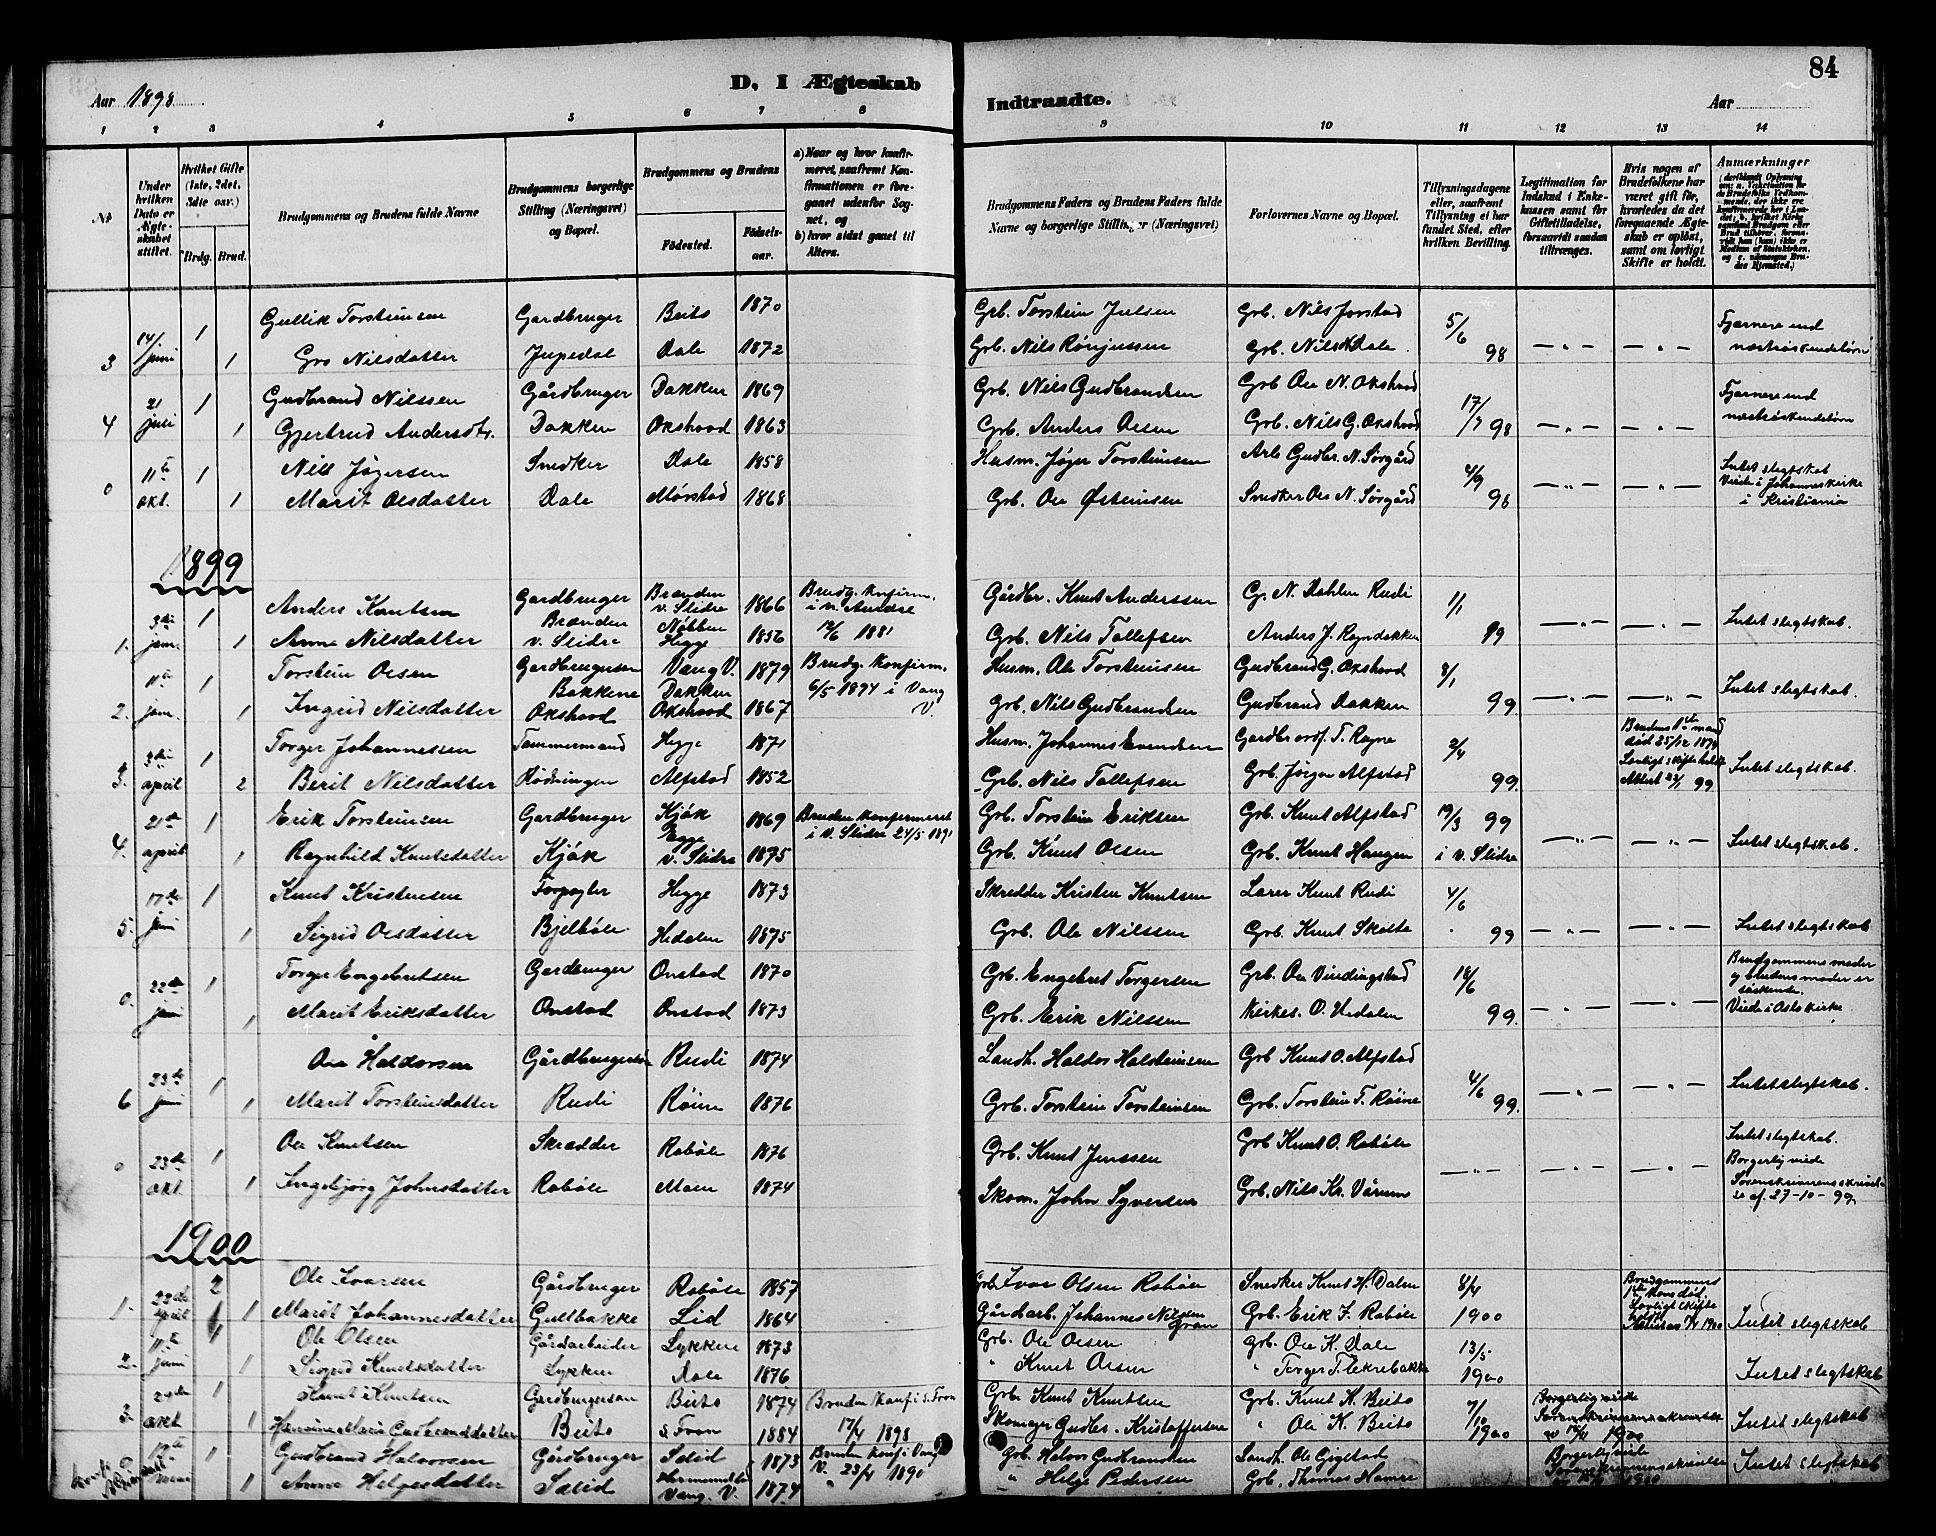 84
D, I Ægteskab
Indtraadte.
Aar 1898
Aar
1 2 3 4 5 6 7 8 9 10 11 12 13 14
No
Under hvilken Dato er Ægteskabet stiftet.
Hvilket Gifte (1ste, 2det, 3die osv.)
Brdg. Brud.
Brudgommens og Brudens fulde Navne
Brudgommens borgerlige Stilling (Næringsvei) og Bopæl.
Brudgommens og Brudens
Födested. Födselsaar.
a) Naar og hvor konfirmeret, saafremt Konfirmationen er foregaaet udenfor Sognet, og
b) hvor sidst gaaet til Alters.
Brudgommens Faders og Brudens Faders fulde Navne og borgerlige Stillinger (Næringsvei)
Forlovernes Navne og Bopæl.
Tillysningsdagene eller, saafremt Tillysning ei har fundet Sted, efter hvilken Bevilling.
Legitimation for Indskud i Enkekassen samt for Giftetilladelse, forsaavidt saadan tiltrænges.
Hvis nogen af Brudefolkene har været gift før, hvorledes da det foregaaende Ægteskab er opløst, samt om lovligt Skifte er holdt.
Anmærkninger
3 14/. juni 1 Gullik Torsteinsen Gardbruger Beito 1870 Grb. Torstein Julsen Grb. Nils Jorstad 5/6 98 Fjernere end
1 Gro Nilsdatter Dale 1872 Grb. Nils Dale næstsøskendebørn
4 21 juli 1 Gudbrand Nilssen Gårdbruger Dokken 1869 Grb. Nils Gudbrandsen Grb Ole N. Okshovd 17/7 98 Fjernere end
1 Gjertrud Andersdt. Dokken Okshovd 1863 Grb. Anders Olsen Grb. Nils G. Okshovd næstsøskendebørn
0 11te okt. 1 Nils Jøgersen Snedker Dale 1858 Husm. Jøger Torsteinsen Arb Gudbr. N. Sørgård 4/9 98 Intet slegtskab
1 Marit Olsdatter Dale Mørstad 1868 Grb. Ole Østensen Snedker Ole N. Sørgård Viede i Johanneskirke
i Kristiania
1899
1. 3die jan. 1 Anders Knutsen Gardbruger Brænden v. Slidre 1866 Brudg. Konfirm. Gårdbr. Knut Anderssen G. N. Dahlen Rudi 1/1 99 Intet slegtskab.
1 Anne Nilsdatter Brænden v. Slidre Hegge 1856 1881 Grb. Nils Tollefsen Anders J. Rogndokken
2. 11te jan. 1 Torstein Olsen Gardbrugersøn Bakkene Vang V. 1879 Brudg. Konfirm. 6/5 1894 i Vang V. Husm. Ole Torsteinsen Gudbrand G. Okshovd 8/1 99. Intet slegtskab.
1 Ingrid Nilsdatter Okshovd Dokken Okshovd 1867 Grb. Nils Gudbrandsen Gudbrand Dokken
3. 3die april 1 Torger Johannessen Tømmermand Hegge 1871 Husm. Johannes Evendsen Gardbr ordf. T. Rogne 2/4 99. Intet slegtskab.
2 Berit Nilsdatter Alfstad 1852 Grb. Nils Tollefsen Grb. Jørgen Alfstad
Brudens 1ste mand død 25/12 1879
4. 21de april 1 Erik Torsteinsen Gardbruger Kjøk 1869 Bruden Konfirmeret i V. Slidre 24/5 1891 Grb. Torstein Eriksen Grb. Knut Alfstad 19/3 99 Intet slegtskab.
1 Ragnhild Knutsdatter Kjøk v. Slidre 1875 Grb. Knut Olsen Grb. Knut Haugen i v. Slidre
5. 17de juni 1 Knut Kristensen Forpagter Hegge 1873 Skredder Kristen Knutsen Lærer Knut Rudi 4/6 99 Intet slegtskab
1 Sigrid Olsdatter Bjelbøle Hedalen 1875 Grb. Ole Nilssen Grb. Knut Skolte
0. 22de juni 1 Torger Engebretsen Gardbruger Onstad 1870 Grb. Engebret Torgersen Grb. Ole Vindingstad 18/6 99. Brudgommens moder og brudens moder er søskende.
1 Marit Eriksdatter Onstad Onstad 1873 Grb. Erik Nilssen Kirkes. O. Hedalen
6 23de juni 1 Ole Haldorsen Gårdbrugersøn Rudi 1874 Landh. Haldor Halsteinsen Grb Knut O. Alfstad 4/6 99. Intet slegtskab.
1 Marit Torsteinsdatter Rudi Røine 1876 Grb. Torstein Torsteinsen Grb. Torstein T. Røine
0 23de okt. 1 Ole Knutsen Skrædder Robøle 1876 Grb. Knut Jenssen Grb Knut O. Robøle Intet slegtskab. Borgerlig viede
1 Ingebjørg Johnsdatter Robøle Moen 1874 Skom. John Syversen Grb. Nils Kr. Vårum Sorenskriverens skrivelse af 27-10-99
1900
1. 22de april 2 Ole Ivarsen Gårdbruger Robøle 1857 Grb. Ivar Olsen Robøle Snedker Knut H. Dalen 8/4 1900 Intet slegtskab
1 Marit Johannesdatter Gullbakke Lid 1864 Gårdarb. Johannes Nilsen Gran Grb. Erik F. Robøle
Brudgommens 1ste Kone død. Lovligt skifte holdt
2. 11te juni 1 Ole Olsen Gårdarbeider Lykken 1873 Grb. Ole Olsen Grb. Ole K. Dale 13/5 1900 Intet slegtskab
1 Sigrid Knutsdatter Lykken Dale 1876 " Knut Olsen " Torger T. Ekrebakke
3. okt 1 Knut Knutsen Gardbrugersøn Beito 1874 Bruden Konf i s. Fron 17/4 1898 Grb. Knut Knutsen Grb. Knut K. Beito 7/10 1900 Borgerlig viede Intet slegtskab
1 Beito s. Fron 1884 Skomager Gudbr. Kristoffersen " Ole K. Beito
1 Gudbrand Halvorsen Gårdbruger Sælid 1873 Bruden konf i Vang V. 23/4 1890 Grb. Halvor Gudbrandsen Landh. Ole Gigstad Borgerlig viede Intet slegtskab
1 Anne Helgesdatter Sælid Vang. V. 1874 " Helge Pedersen Grb. Thomas Hamre